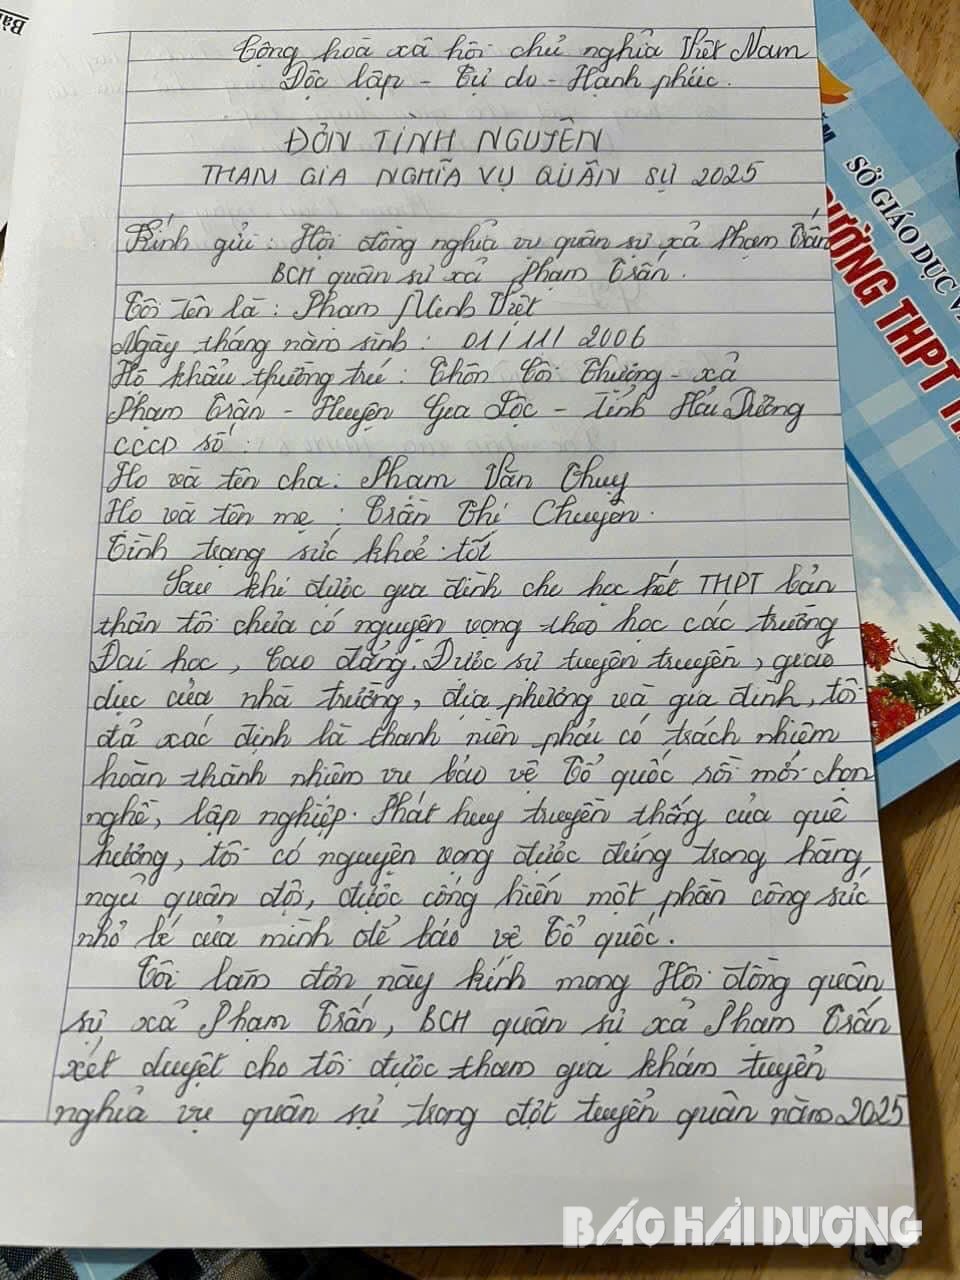 Cộng hoà xã hội chủ nghĩa Việt Nam
Độc lập - Tự do - Hạnh phúc.
ĐƠN TÌNH NGUYỆN
THAM GIA NGHĨA VỤ QUÂN SỰ 2025
Kính gửi: Hội đồng nghĩa vụ quân sự xã Phạm Trấn
BCH quân sự xã Phạm Trấn.
Tôi tên là: Phạm Minh Việt
Ngày tháng năm sinh: 01/11/2006
Hộ khẩu thường trú: Thôn Côi Thượng - xã
Phạm Trấn - Huyện Gia Lộc - Tỉnh Hải Dương
CCCD số:
Họ và tên cha: Phạm Văn Thụy
Họ và tên mẹ: Trần Thị Chuyên.
Tình trạng sức khoẻ: tốt
Sau khi được gia đình cho học hết THPT bản
thân tôi chưa có nguyện vọng theo học các trường
Đại học, Cao đẳng. Được sự tuyên truyền, giáo
dục của nhà trường, địa phương và gia đình, tôi
đã xác định là thanh niên phải có trách nhiệm
hoàn thành nhiệm vụ bảo vệ Tổ quốc rồi mới chọn
nghề, lập nghiệp. Phát huy truyền thống của quê
hương, tôi có nguyện vọng được đứng trong hàng
ngũ quân đội, được cống hiến một phần công sức
nhỏ bé của mình để bảo vệ Tổ quốc.
Tôi làm đơn này kính mong Hội đồng quân
sự xã Phạm Trấn, BCH quân sự xã Phạm Trấn
xét duyệt cho tôi được tham gia khám tuyển
nghĩa vụ quân sự trong đợt tuyển quân năm 2025
SỞ GIÁO DỤC V
ƯỜNG THPT
BÁO HẢI DƯƠNG